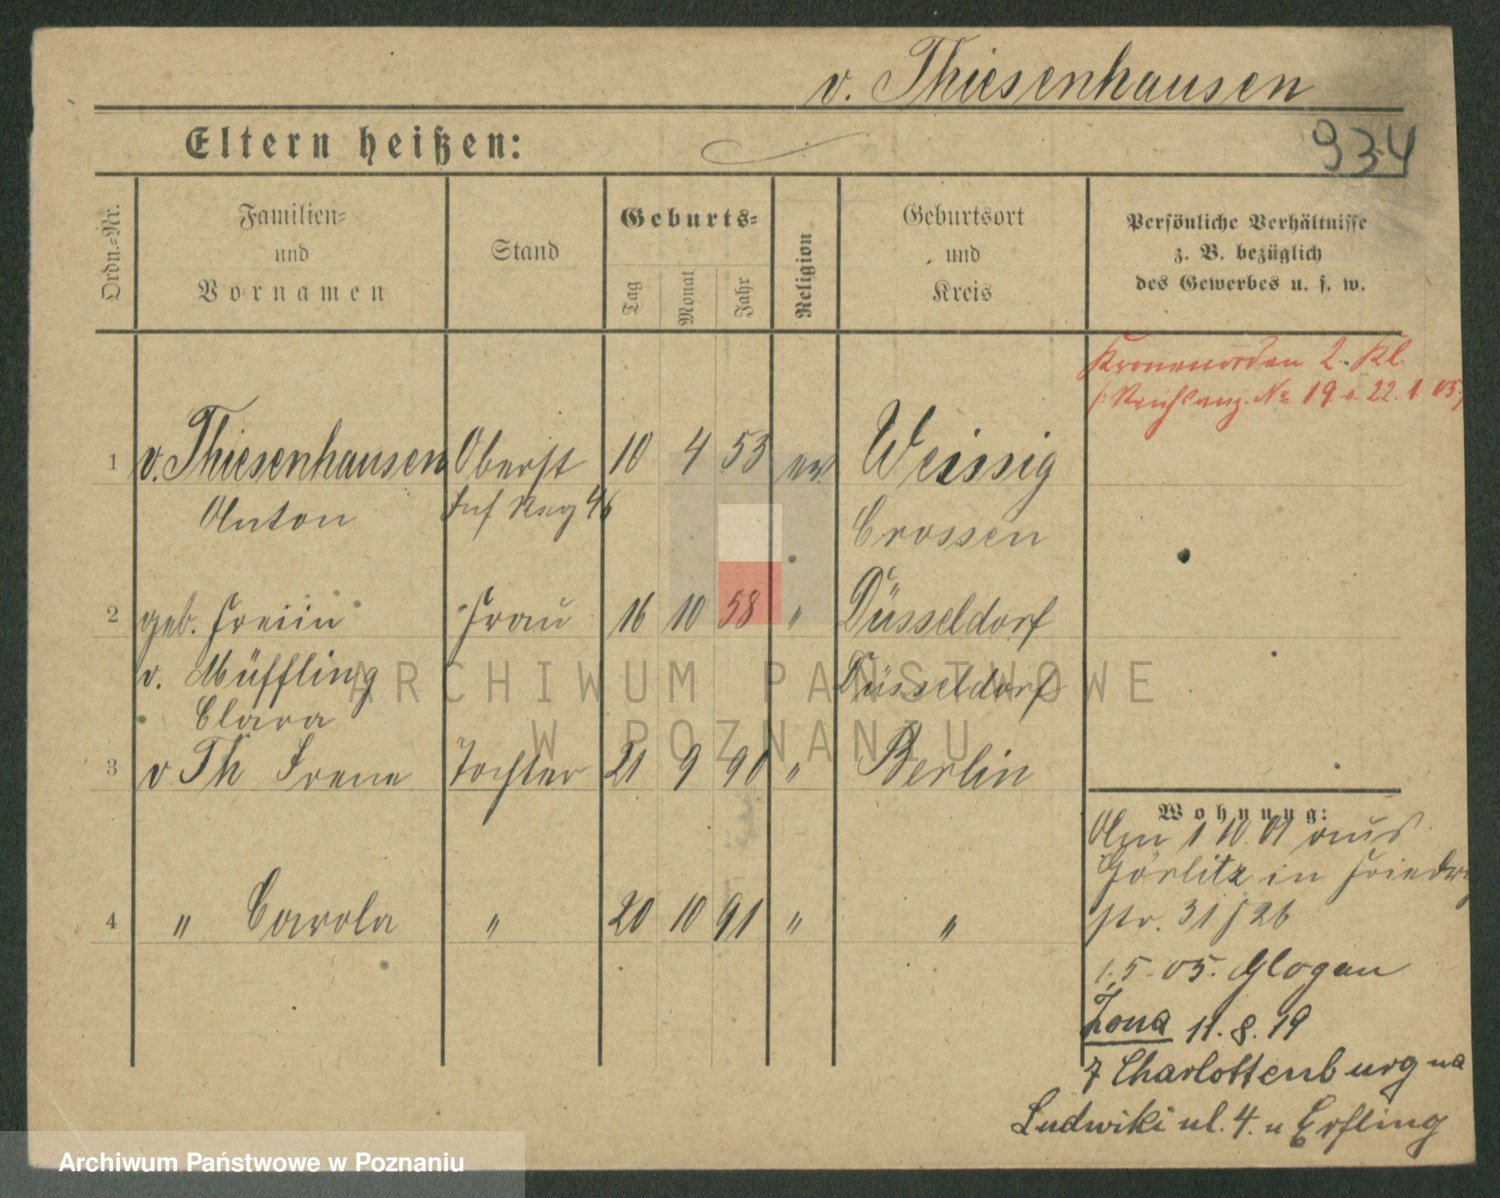 v. Thiesenhausen
Eltern heißen:
934
Ordn.-Nr.
Familien-
und
Vornamen
Stand
Geburts-
Tag
Monat
Jahr
Religion
Geburtsort
und
Kreis
Persönliche Verhältnisse
z. B. bezüglich
des Gewerbes u. s. w.
Kronenorden 2. Kl.
(: Reichsanz. No 19 v. 22. 1. 05)
1 v. Thiesenhausen Oberst 10 4 53 ev Weissig
Anton Inf Reg 46 Crossen
2 geb. Freiin Frau 16 10 58 " Düsseldorf
v. Müffling Düsseldorf
Clara
3 v Th Irene Tochter 21 9 90 " Berlin
4 " Carola " 20 10 91 " "
Wohnung:
Am 1 10. 01 aus
Görlitz in Friedr
str. 31 / 26
1. 5. 05. Glogau
Żona 11. 8. 19
z Charlottenburg na
Ludwiki ul. 4. u Erfling
ARCHIWUM PAŃSTWOWE
W POZNANIU
Archiwum Państwowe w Poznaniu